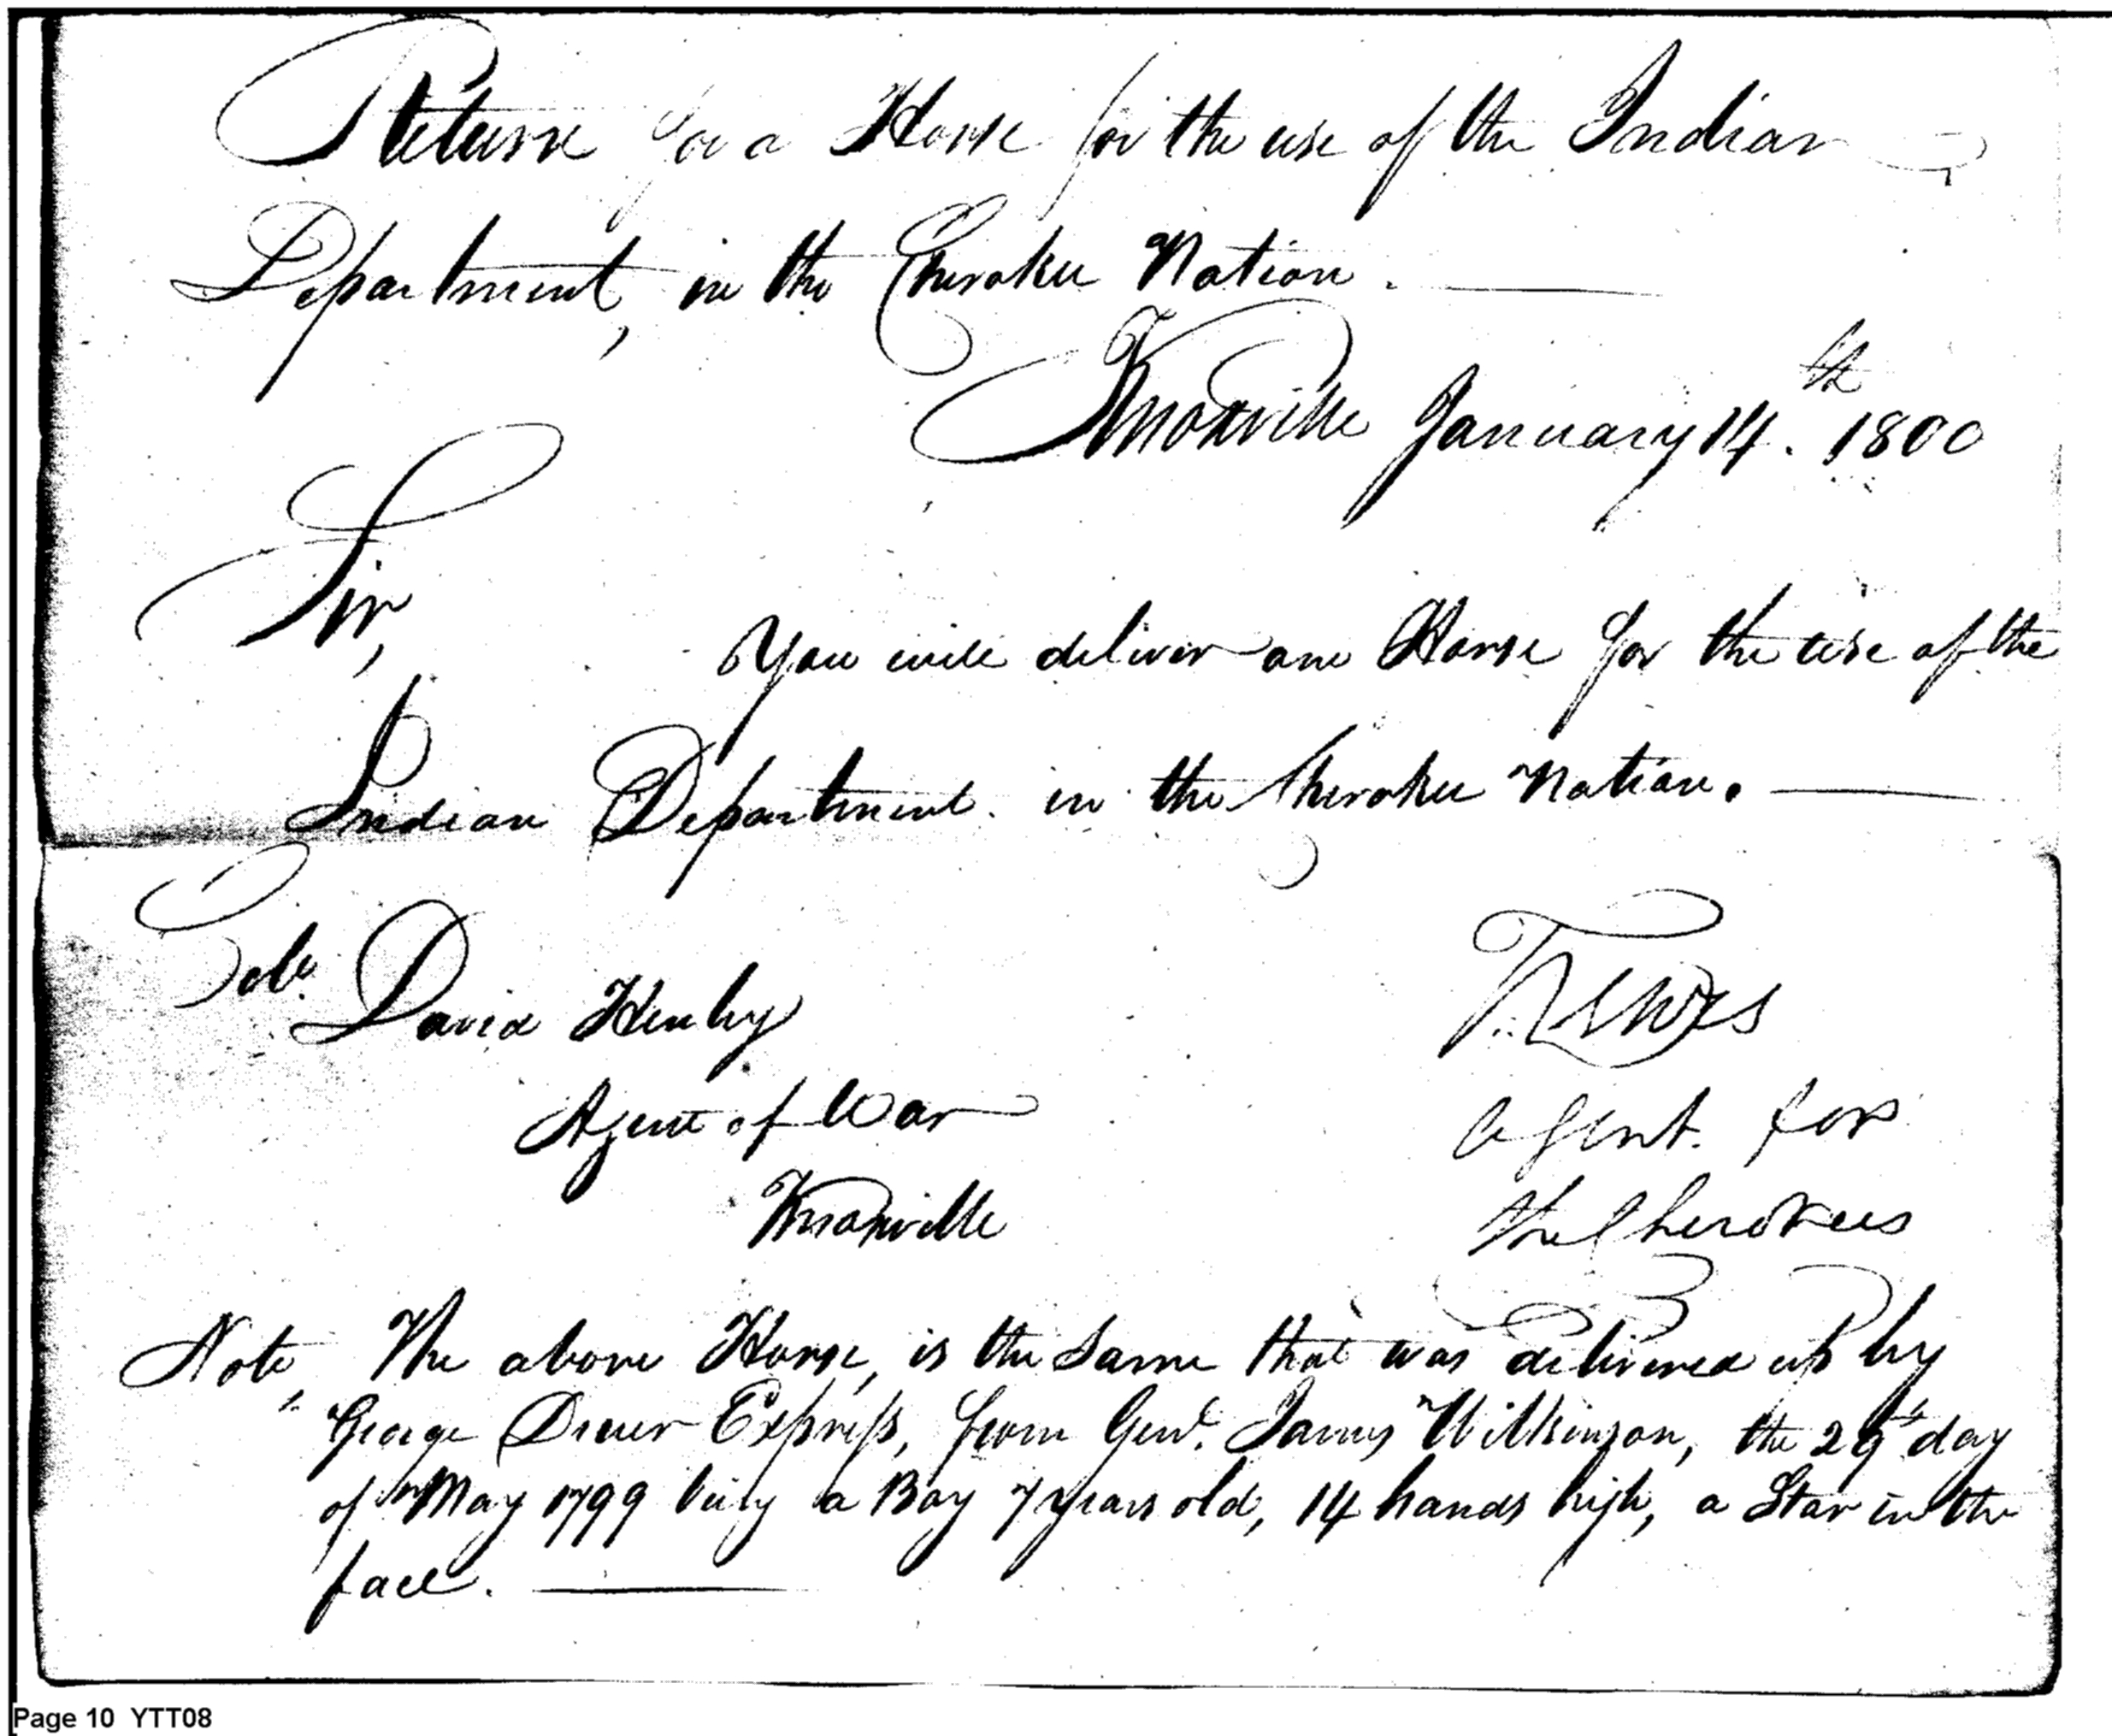 Return for a Horse for the use of the Indian
Department, in the Cherokee Nation.
Knoxville January 14th. 1800
Sir,
You will deliver one Horse for the use of the
Indian Department. in the Cherokee Nation.
Colo. David Henley
Agent of War
Knoxville
Agent for
the Cherokees
Note, The above Horse, is the Same that was delivered up by
George Express, from Genl. James Wilkinson, the 29th day
of May 1799 being a Bay 7 years old, 14 hands high, a Star in the
face.
Page 10 YTT08